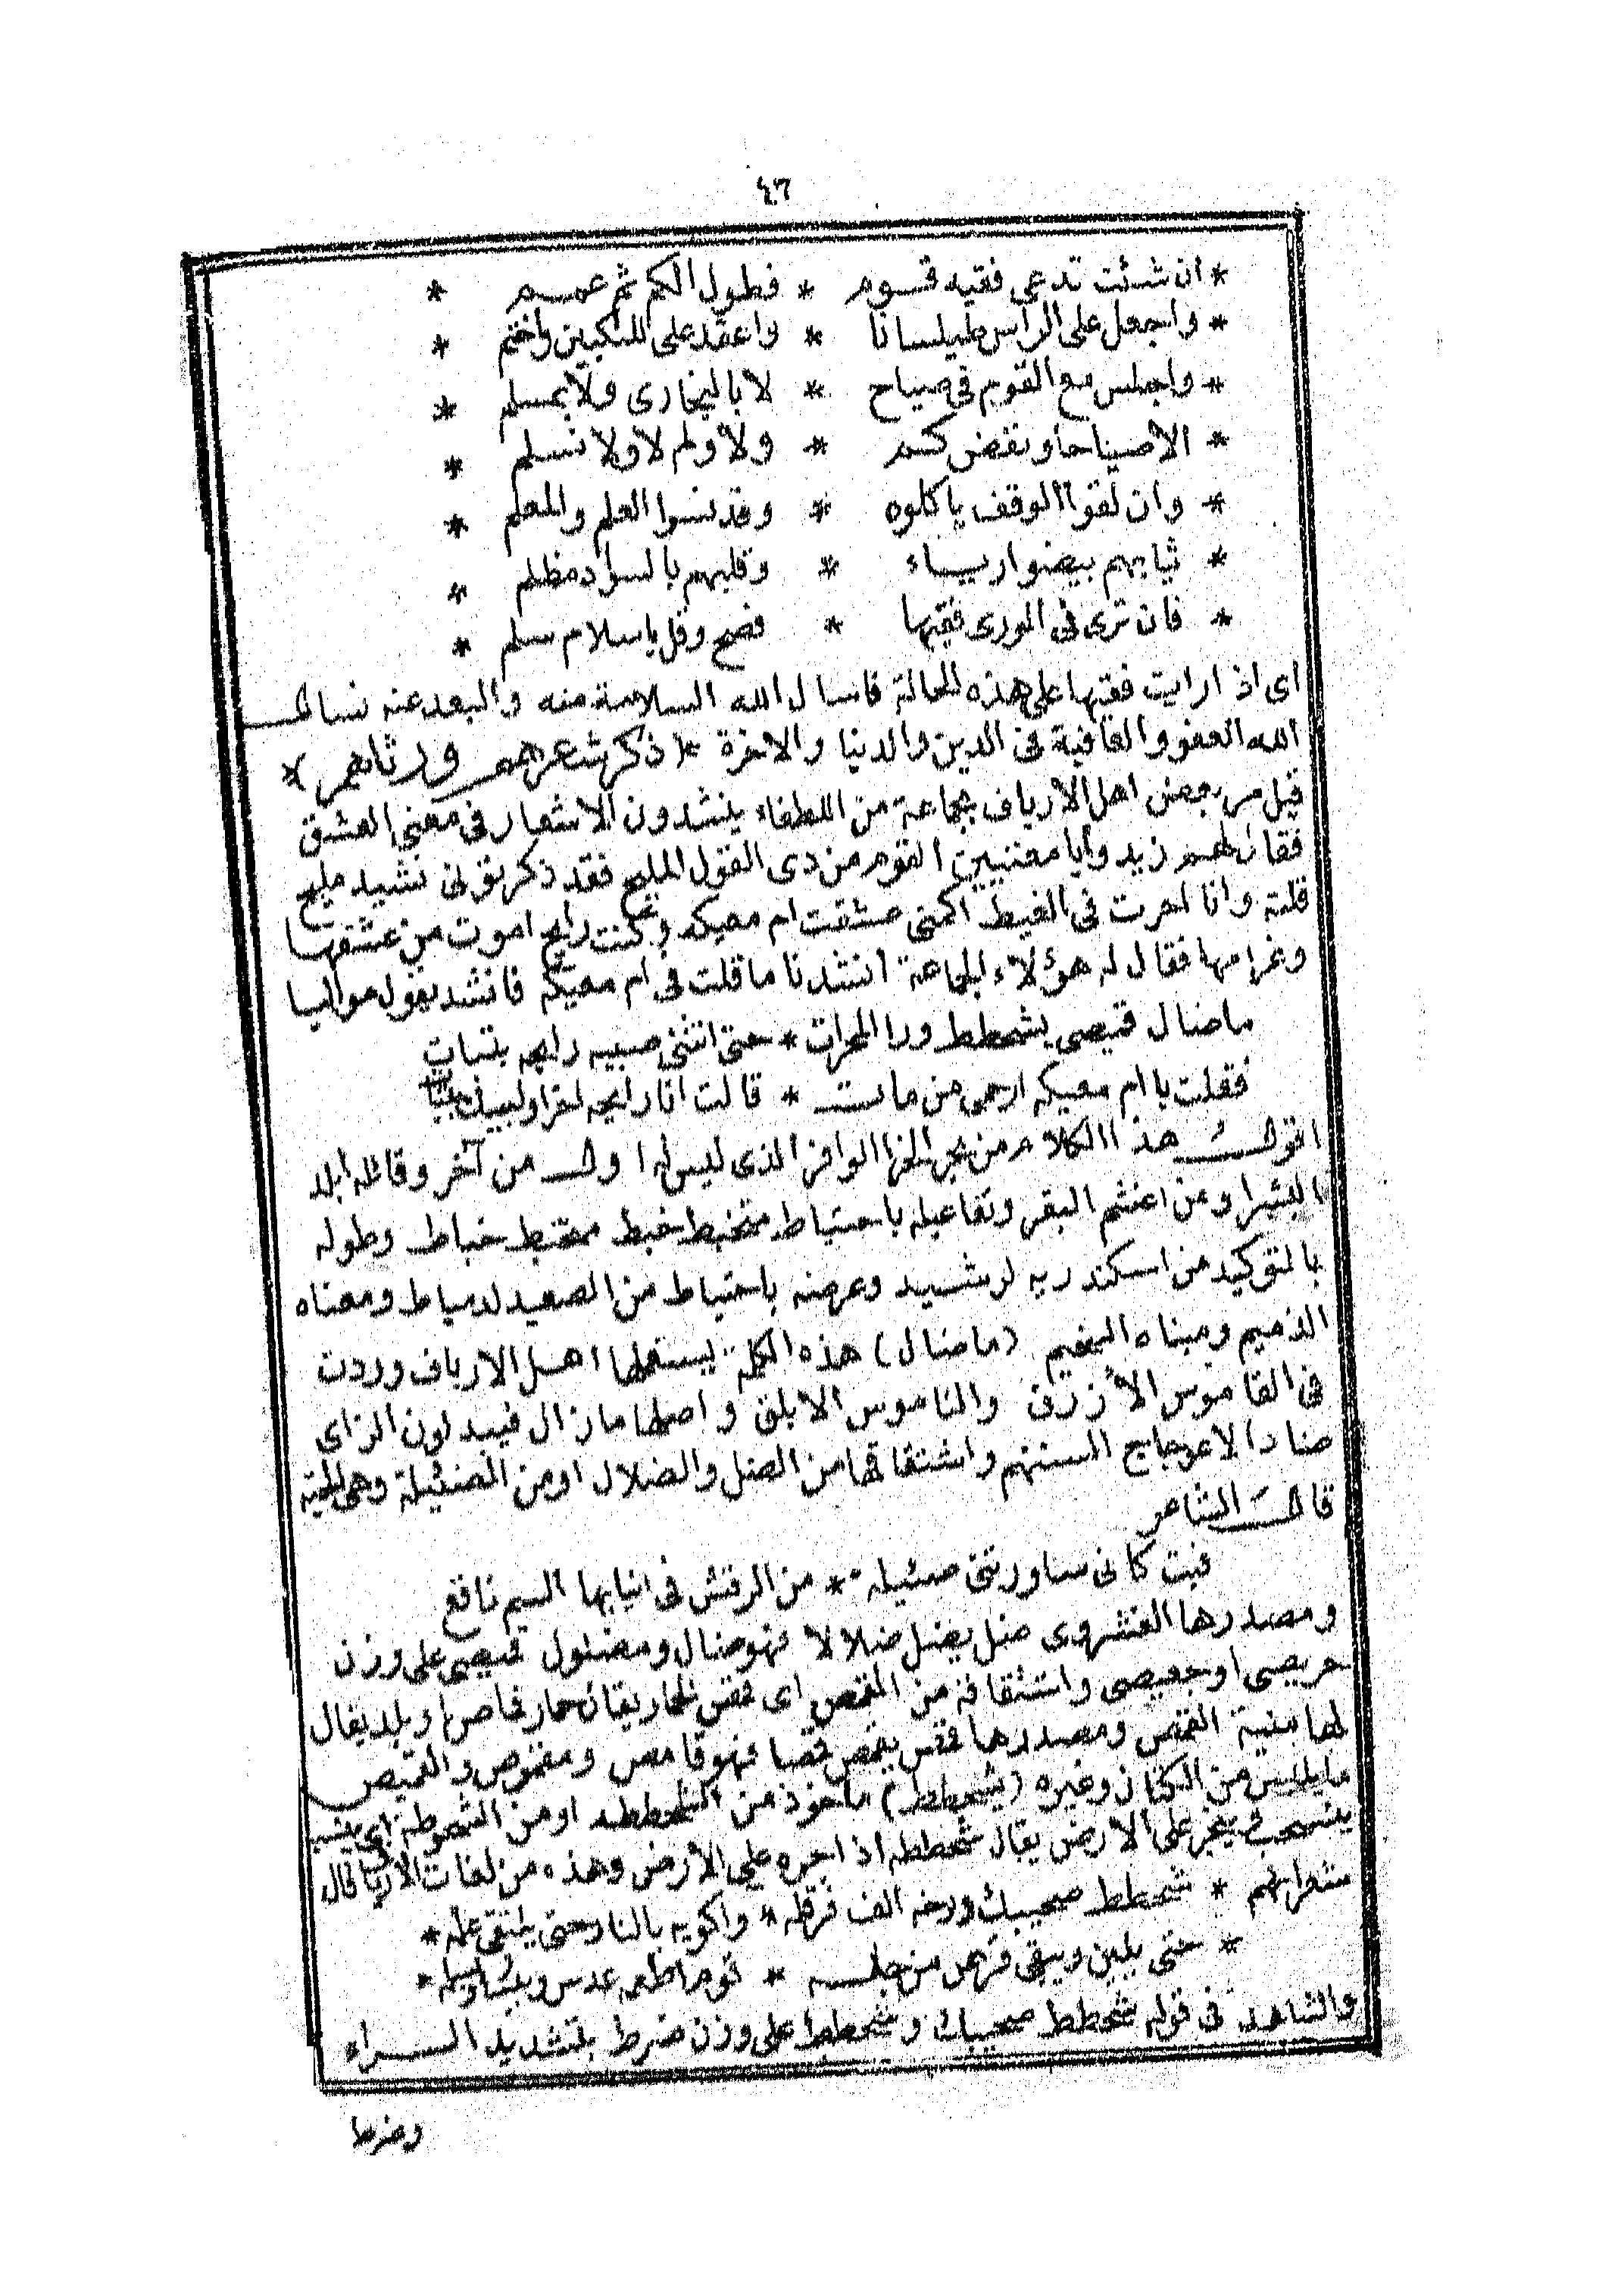 ٤٦
* ان شئت تدعى فقيه قوم * فطول الكم ثم عمم *
* واجعل على الراس طيلسانا * واعقد على المنكبين واختم *
* واجلس مع القوم فى صياح * لا بالبخارى ولا بمسلم *
* الا صياحا ونفض كم * ولا ولم لا ولا نسلم *
* وان لقوا الوقف ياكلوه * وقد نسوا العلم والمعلم *
* ثيابهم بيضوا رياء * وقلبهم بالسواد مظلم *
* فان ترى فى الورى فقيها * فصح وقل يا سلام سلم *
اى اذا رايت فقيها على هذه الحالة فاسال الله السلامة منه والبعد عنه نسال
الله العفو والعافية فى الدين والدنيا والاخرة * (ذكر شعرهم ورثاثهم) *
قيل مر بعض اهل الارياف بجماعة من اللطفاء ينشدون الاشعار فى معنى العشق
فقال لهم زيدوا يا مغنيين القوم من دى القول المليح فقد ذكرتونى نشيد مليح
قلته وانا احرت فى الغيط لكنى عشقت ام معيكه وكنت رايح اموت من عشقها
وغرامها فقال له هؤلاء الجماعة انشدنا ما قلت فى ام معيكه فانشد يقول مواليا
ماضال قميصى يشحطط ورا المحرات * حتى انثنى صبيه رايحه بتبات
فقلت يا ام معيكه ارحمى من مات * قالت انا رايحه اخرا ولبيك
اقول هذا الكلام من بحر الخرا الوافر الذى ليس له اول من آخر وقائله ابلد
البشر او من اغشم البقر وتفاعيله باحتياط متخبط خبط مختبط خباط وطوله
بالتوكيد من اسكندريه لرشيد وعرضه باحتياط من الصعيد لدمياط ومعناه
الذميم ومبناه (ماضال) هذه الكلمة يستعملها اهل الارياف وردت
فى القاموس الأزرق والناموس الابلق واصلها مازال فيبدلون الزاى
ضادا لاعوجاج السنتهم واشتقاقها من الضل والضلال اومن الضئيلة وهى الحية
قال الشاعر
فبت كانى ساورتنى ضئيلة * من الرقش فى انيابها السم ناقع
ومصدرها الفشروى ضل يضل ضلالا فهو ضال ومضلول قميصى على وزن
حريصى او جعيصى واشتقاقه من القمص اى قمص الحمار يقال حمار قامص او بلد يقال
لها منية القمص ومصدرها قمص يقمص قمصا فهو قامص ومقموص والقميص
ما يلبس من الكتان وغيره (يشحطط) ماخوذ من الشحططه اومن الشحوطة اى
ينسحب فى يجر على الارض يقال شحططه اذا جره على الأرض وهذه من لغات الارياف قال
شعرايهم * شحطط صحيبك ودخه الف فرقله * واكويه بالنار حتى يلتقى عله *
* حتى يلين ويبقى قرص من جله * قوم اطعمه عدس وبيشار *
والشاهد فى قوله شحطط صحيبك وشحطط على وزن ضرط بتشديد الراء
وضرط